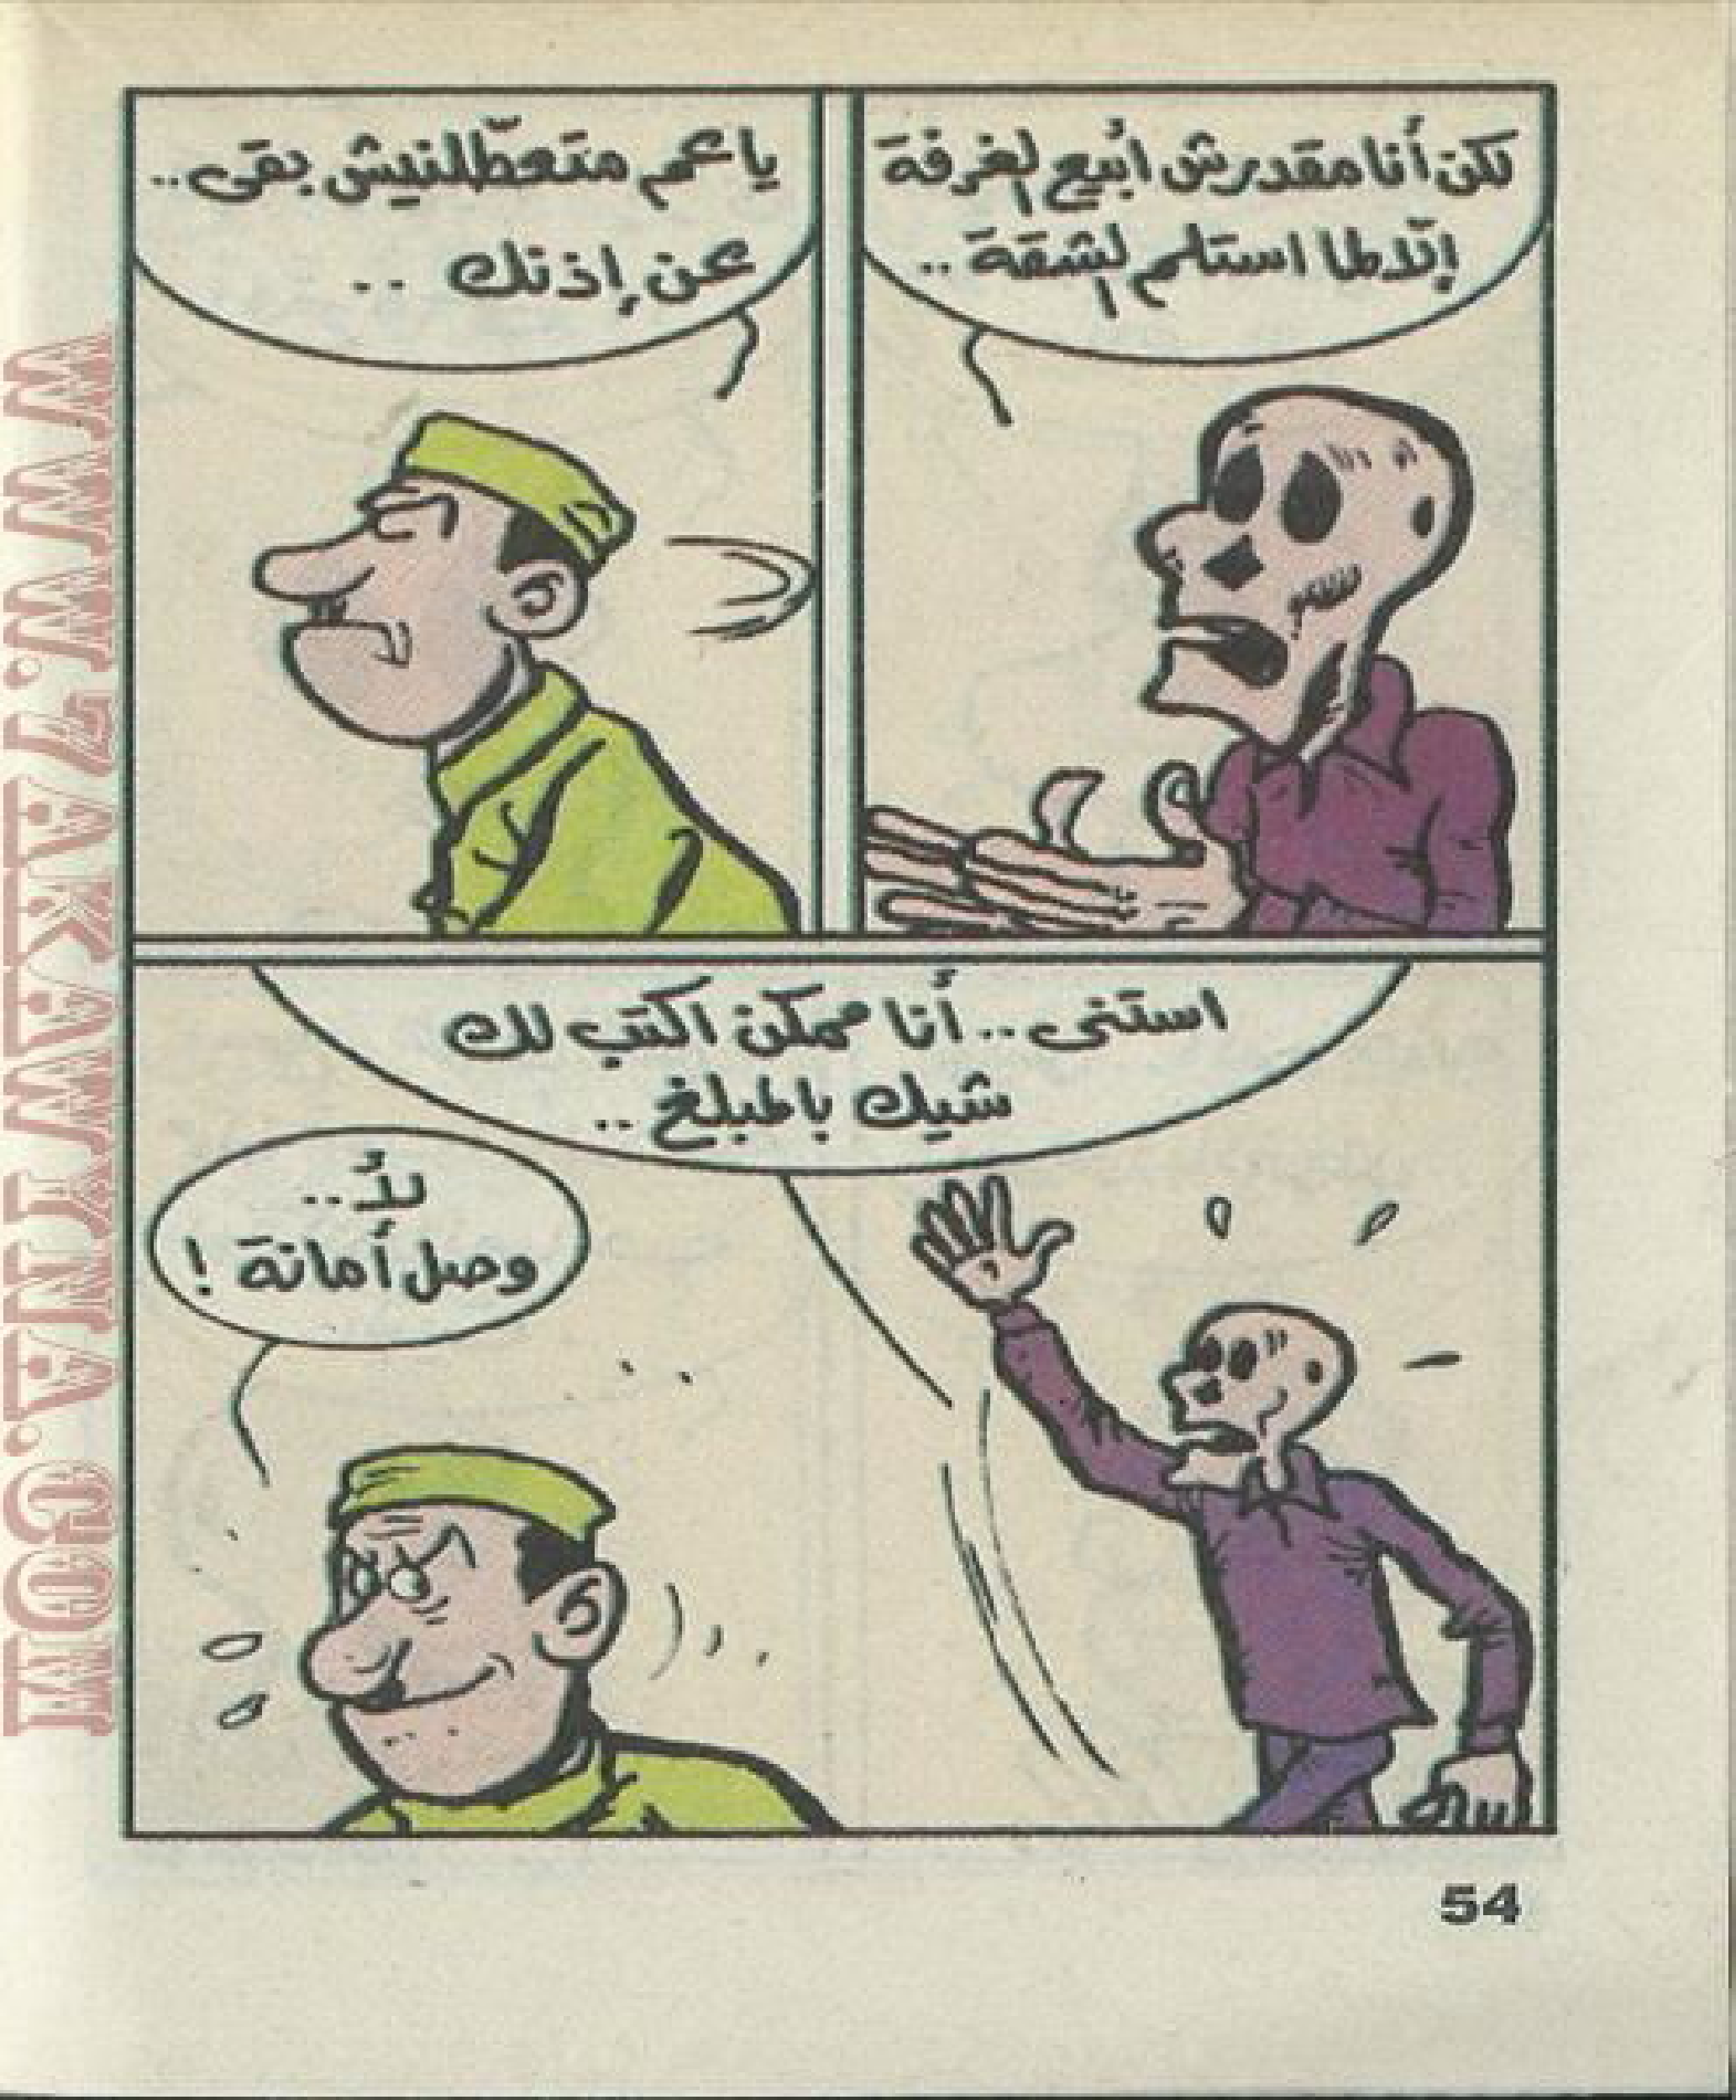 لكن أنا مقدرش أبيع الغرفة
إلا لما استلم الشقة ..
يا عم متعطّلنيش بقى ..
عن إذنك ..
استنى .. أنا ممكن اكتب لك
شيك بالمبلغ ..
لأ ..
وصل أمانة !
54
WWW.7AKAWTNA.COM